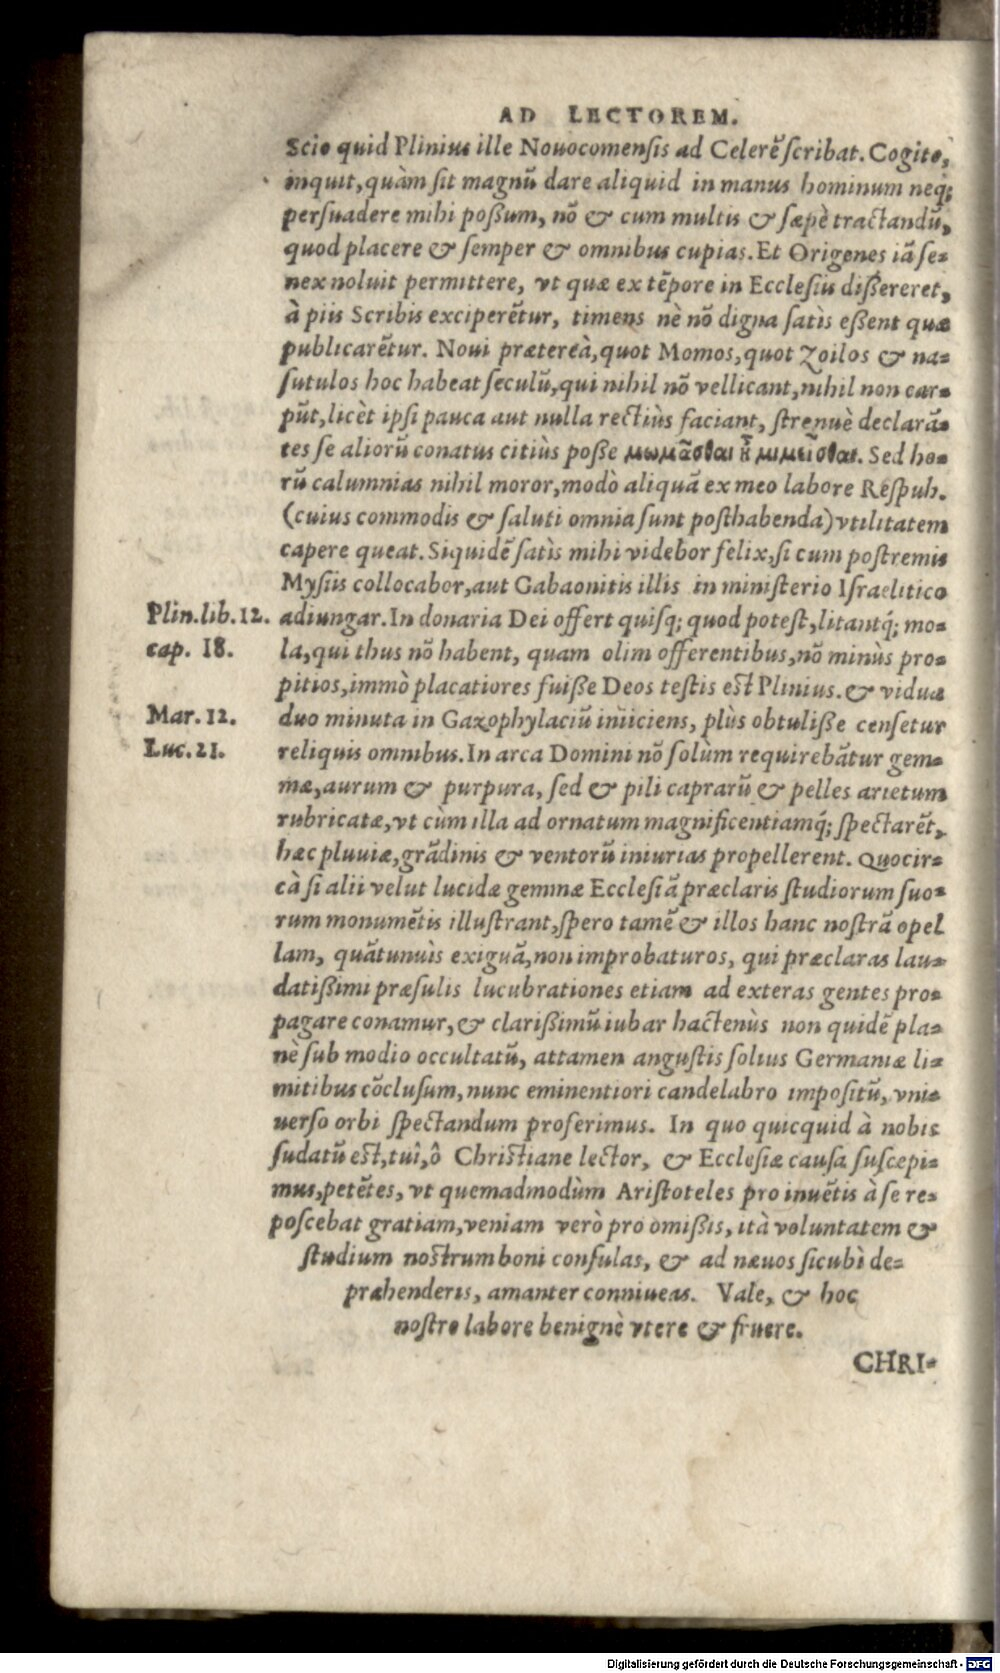 AD LECTOREM.
Scio quid Plinius ille Nouocomensis ad Celerẽ scribat. Cogito,
inquit, quàm sit magnũ dare aliquid in manus hominum neq;
persuadere mihi poßum, nõ & cum multis & sæpè tractandũ,
quod placere & semper & omnibus cupias. Et Origenes iã se-
nex noluit permittere, vt quæ ex tẽpore in Ecclesiis dißereret,
à piis Scribis exciperẽtur, timens nè nõ digna satìs eßent quæ
publicarẽtur. Noui prætereà, quot Momos, quot Zoilos & na-
sutulos hoc habeat seculũ, qui nihil nõ vellicant, nihil non car-
pũt, licèt ipsi pauca aut nulla rectiùs faciant, strenuè declarã-
tes se aliorũ conatus citiùs posse μωμᾶσθαι ἢ μιμεῖσθαι. Sed ho-
rũ calumnias nihil moror, modò aliquã ex meo labore Respub.
(cuius commodis & saluti omnia sunt posthabenda) vtilitatem
capere queat. Siquidẽ satìs mihi videbor felix, si cum postremis
Mysiis collocabor, aut Gabaonitis illis in ministerio Israelitico
Plin. lib. 12. adiungar. In donaria Dei offert quisq; quod potest, litantq́; mo-
cap. 18. la, qui thus nõ habent, quam olim offerentibus, nõ minùs pro-
pitios, immò placatiores fuiße Deos testis est Plinius. & vidua
Mar. 12. duo minuta in Gazophylaciũ iniiciens, plùs obtuliße censetur
Luc. 21. reliquis omnibus. In arca Domini nõ solùm requirebãtur gem-
mæ, aurum & purpura, sed & pili caprarũ & pelles arietum
rubricatæ, vt cùm illa ad ornatum magnificentiamq́; spectarẽt,
hæc pluuiæ, grãdinis & ventorũ iniurias propellerent. Quocir-
cà si alii velut lucidæ gemmæ Ecclesiã præclaris studiorum suo-
rum monumẽtis illustrant, spero tamẽ & illos hanc nostrã opel
lam, quãtunuìs exiguã, non improbaturos, qui præclaras lau-
datißimi præsulis lucubrationes etiam ad exteras gentes pro-
pagare conamur, & clarißimũ iubar hactenùs non quidẽ pla-
nè sub modio occultatũ, attamen angustis solius Germaniæ li-
mitibus cõclusum, nunc eminentiori candelabro impositũ, vni-
uerso orbi spectandum proferimus. In quo quicquid à nobis
sudatũ est, tuî, ô Christiane lector, & Ecclesiæ causa suscepi-
mus, petẽtes, vt quemadmodùm Aristoteles pro inuẽtis à se re-
poscebat gratiam, veniam verò pro omißis, ità voluntatem &
studium nostrum boni consulas, & ad næuos sicubì de-
præhenderis, amanter conniueas. Vale, & hoc
nostro labore benignè vtere & fruere.
CHRI-
Digitalisierung gefördert durch die Deutsche Forschungsgemeinschaft - DFG